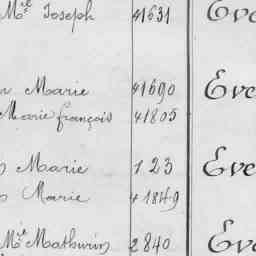 Mie Joseph 41631 Eve
Marie 41690 Eve
Marie françois 41805
Marie 123 Eve
Marie 41849
Mie Mathurin 2840 Eve